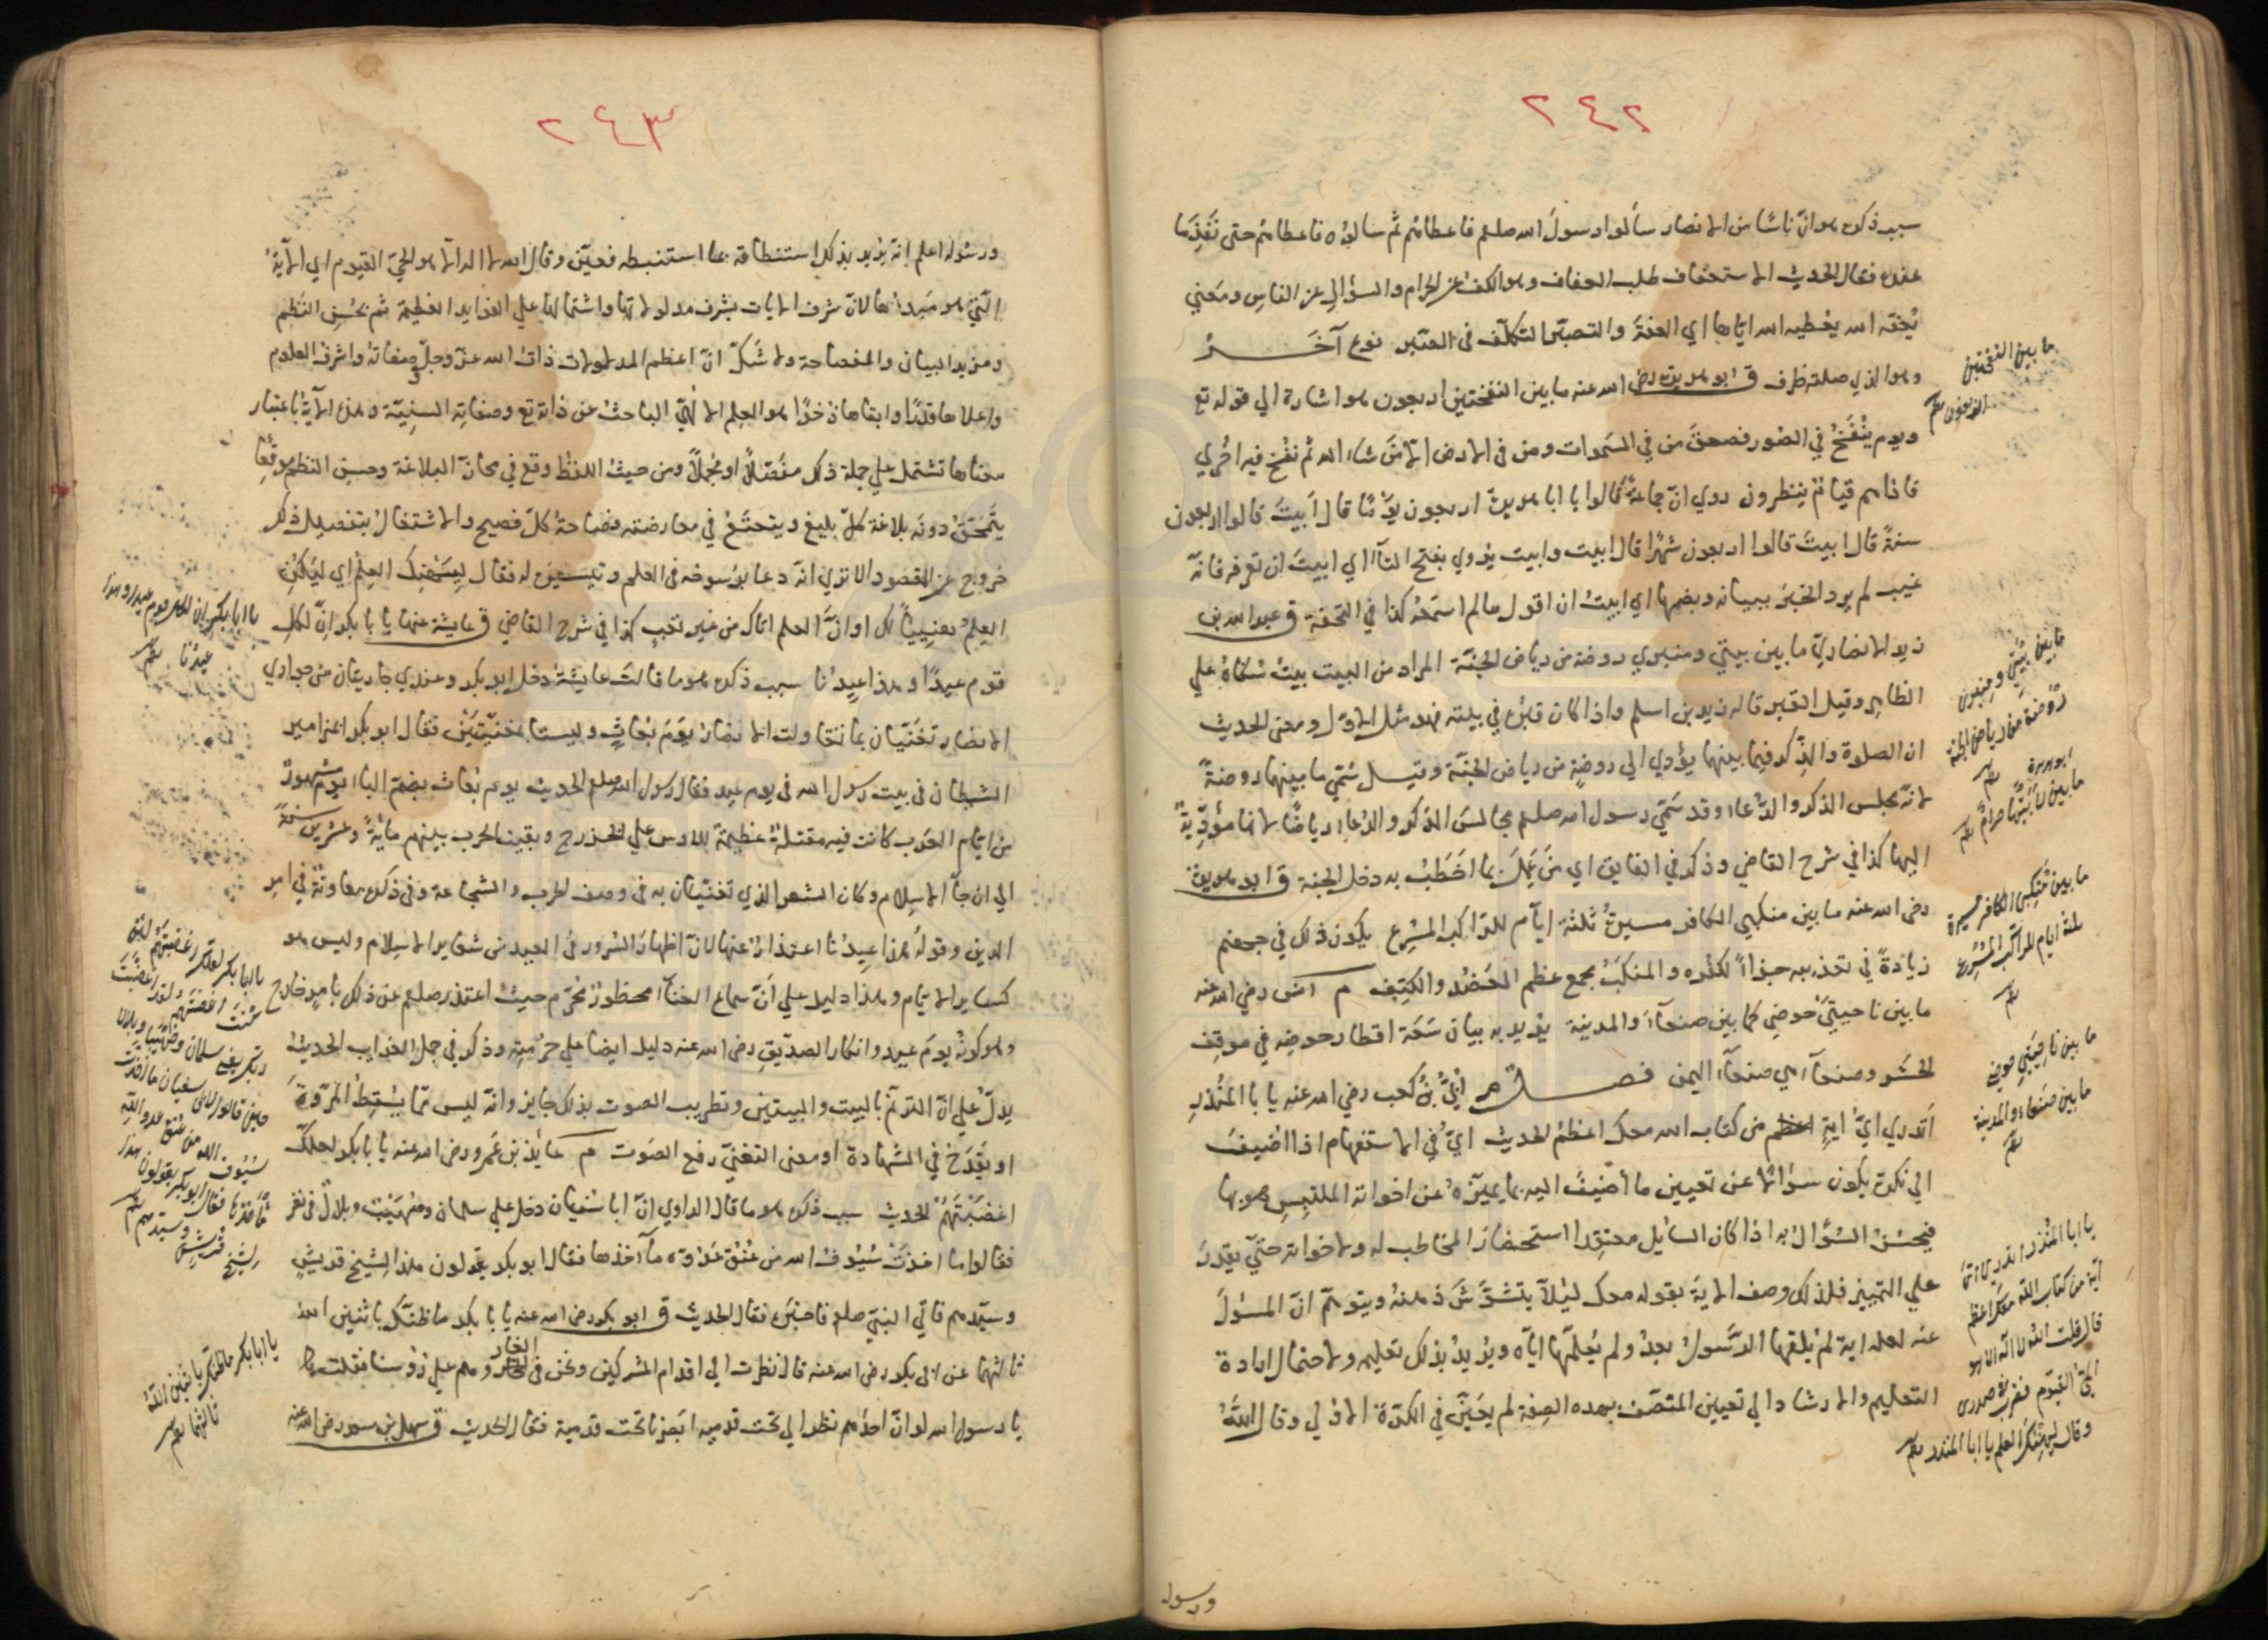 ٢٤٢
سبب ذكره هو انّ ناسًا من الانصار سألوا رسول الله صلعم فاعطاهم ثم سالوه فاعطاهم حتى نَفِدَ ما
عنده فقال الحديث الاستعفاف طلب العفاف وهو الكف عن الحرام والسؤال عن الناس ومعني
يُعفّه الله يعطيه الله ايّاها اي العفة والتصبّر التكلّف في الصّبر نوع آخر
وهو الذي صلته ظرف ق ابو هريرة رض الله عنه ما بين النفختين اربعون هو اشارة الي قوله تع
ويوم يُنْفَخُ في الصّور فصعق من في السّموات ومن في الارض الا من شاء الله ثم نفخ فيه اخري
فاذا هم قيامٌ ينظرون روي انّ جماعةً قالوا يا ابا هريرة اربعون يومًا قال ابيتَ قالوا اربعون
سنةً قال ابيتَ قالوا اربعون شهرًا قال ابيت وابيت يروي بفتح التآء اي ابيتَ ان تعرفه فانّه
غيب لم يرد الخبر ببيانه وبضمها اي ابيتُ ان اقول ما لم اسمعه كذا في التحفة ق عبد الله بن
زيد الانصاريّ ما بين بيتي ومنبري روضة من رياض الجنّة المراد من البيت بيتُ سُكناهُ علي
الظاهر وقيل القبر قاله زيد بن اسلم واذا كان قبرُه في بيته فهو مثل الاوّل ومعنى الحديث
ان الصلوة والذّكر فيما بينهما يؤدي الى روضةٍ من رياض الجنّة وقيل سُمّي ما بينهما روضةً
لانّه مجلس الذكر والدّعاء وقد سَمّي رسول الله صلعم مجالسَ الذكر والدّعاء رياضًا لانها مؤدّيةٌ
اليها كذا في شرح القاضي وذكر في الفايق اي مَن عَمِلَ بما اَخْطُبُ به دخل الجنة ق ابو هريرة
رض الله عنه ما بين منكبي الكافر مسيرةُ ثلثة ايّام للرّاكب المُسْرِع يكون ذلك في جهنم
زيادةً في تعذيبه جزاءً لكفره والمنكبُ مجمع عظم العَضُد والكتِف م انس رضي الله عنه
ما بين ناحيتَيْ حَوضي كما بين صنعآءَ والمدينة يريد به بيان سَعَة اقطار حوضه في موقف
الحشر وصنعآء هي صنعآء اليمن فصل م اُبَيُّ بنُ كعب رضي الله عنه يا با المُنْذِرِ
اَتدري ايّ ايةٍ من كتاب الله معك اعظمُ الحديث ايّ في الاستفهام اذا اضيفَ
الي نكرة يكون سؤالًا عن تعيين ما اُضيفَ اليه بما يميّزهُ عن اخواته الملتبِس هو بها
فيحسُنُ السؤال به اذا كان السايل معتقِدا استحضارَ المخاطب له ولاخواته حتيّ يقدِرَ
علي التمييز فلذلك وصف الايةَ بقوله معك ليُلّا يتشوّشَ ذهنُهُ ويتوهّمَ انّ المسؤلَ
عنه لعله اية لم يُلقها الرّسولُ بعدُ ولم يُعلّمها ايّاه ويُريدُ بذلك تعليمه ولاحتمال ارادة
التعليم والارشاد الي تعيين المتّصف بهذه الصفة لم يعيّن في الكرّة الاولي وقال اللهُ
ورسوله
ما بين النفختين
اربعون
ما بين بيتي ومنبري
روضة من رياض الجنة
ابو هريرة
ما بين لابتيها حرام
ما بين منكبي الكافر مسيرة
ثلثة ايام للراكب المسرع
ما بين ناحيتي حوضي
ما بين صنعاء والمدينة
يا ابا المنذر اتدري ايّ
آية من كتاب الله معك اعظم
قال قلت الله لا اله الا هو
الحيّ القيوم فضرب في صدري
وقال ليهنك العلم يا ابا المنذر
٢٤٣
ورسُوله اعلم انّه يُريد بذلك استنطاقَه عما استنبطه فعيّن وقال الله لا اله الا هو الحيّ القيوم اي الآيةُ
الّتي هو مَبدأها لانّ شرف الايات بشرف مدلولاتها واشتمالها علي الفوايد العظيمة ثم بحُسْن النَّظم
ومزيد البيان والفصاحة ولا شكّ انّ اعظم المدلولات ذاتُ الله عزّ وجلّ وصفاتهُ واشرف العلوم
واعلاها قدْرًا وابقاها ذخرًا هو العِلم الالهيّ الباحثُ عن ذاته تع وصفاته السنيّة وهذه الايةُ باعتبار
معناها تشتمل علي جملة ذلك مفصّلاً او مُجملًا ومن حيثُ اللفظ وقع في محازّ البلاغة وحسن النظم موقعا
يَنْمَحقُ دونَه بلاغة كلّ بليغ ويتعتَعُ في معارضته فصاحةُ كلّ فصيح والاشتغالُ بتفصيل ذلك
خروج عن المقصود الا تري انّه دعا برُسوخه في العلم وتيسيره له فقال لِيَهْنِك العِلمُ اي لِيَكُن
العِلمُ هنِيئًا لك او انّ العلم اتاك من غير تعب كذا في شرح القاضي ق عايشة عنها يا با بكر انّ لكلِ
قوم عيدًا وهذا عيدُنا سبب ذكره هو ما قالت عايشةُ دخل ابو بكر وعندي جاريتان من جواري
الانصار تغنّيان بما تقاولت الانصارُ يومَ بُعاثٍ وليستا بمغنّيتَيْنِ فقال ابو بكر امزامير
الشيطان في بيت رسول الله في يوم عيد فقال رسول الله صلعم الحديث يوم بُعاث بضمّ البا يوم مشهورٌ
من ايّام العَرب كانت فيه مقتلةٌ عظيمة للاوس علي الخزرج وبقيت الحرب بينهم مايةً وعشرين سنةً
الي ان جآ الاسلام وكان الشعر الذي تغنّيان به في وصف الحرب والشجاعة وفي ذكره معاونةٌ في امر
الدين وقولهُ هذا عيدُنا اعتذارٌ عنها لانّ اظهارَ السّرور في العيد من شعاير الاسلام وليس هو
كساير الايّام وهذا دليل علي اَنّ سماع الغنآء محظورٌ مُحرّم حيثُ اعتذر صلعم عن ذلك بامرٍ خارج
وهو كونُه يومَ عيدٍ وانكار الصديّق رض الله عنه دليل ايضا علي حُرمته وذكر في جل الغرايب الحديثُ
يدلّ عليَ انّ الترنّم بالبيت والبيتين وتطريب الصوت بذلك جايز وانّه ليس ممّا يُسقِطُ المُروّةَ
او يَقْدَح في الشهادة او معنى التغنّي رفع الصّوت م عايذ بن عَمرو رض الله عنه يا با بكر لعلك
اغضَبْتَهُمْ الحديث سبب ذكره هو ما قال الراوي انّ ابا سفيان دخل علي سلمان وصُهَيْبٍ وبلال في نفر
فقالوا ما اخذَتْ سُيُوفُ الله من عُنُق عدوّه مأخذها فقال ابو بكر تقولون هذا لِشيخ قريشٍ
وسيّدهم فاتي النبيّ صلع فاخبرَه فقال الحديث ق ابو بكر رض الله عنه يا با بكر ما ظنّك باثنين اللهُ
ثالثهما عن ابي بكر رض الله عنه قال نظرت الي اقدام المشركين ونحن في الغار وهم علي رؤسنا فقلت
يا رسول الله لو انّ احدَهم نظر الي تحت قدميه ابصرنا تحت قدمية فقال الحديث ق سهل بن سعد رض الله عنه
يا ابا بكر ان لكل قوم عيدا وهذا
عيدنا
يا ابا بكر لعلك اغضبتهم لئن
كنت اغضبتهم لقد اغضبت
ربك
يا ابا بكر ما ظنك باثنين الله
ثالثهما